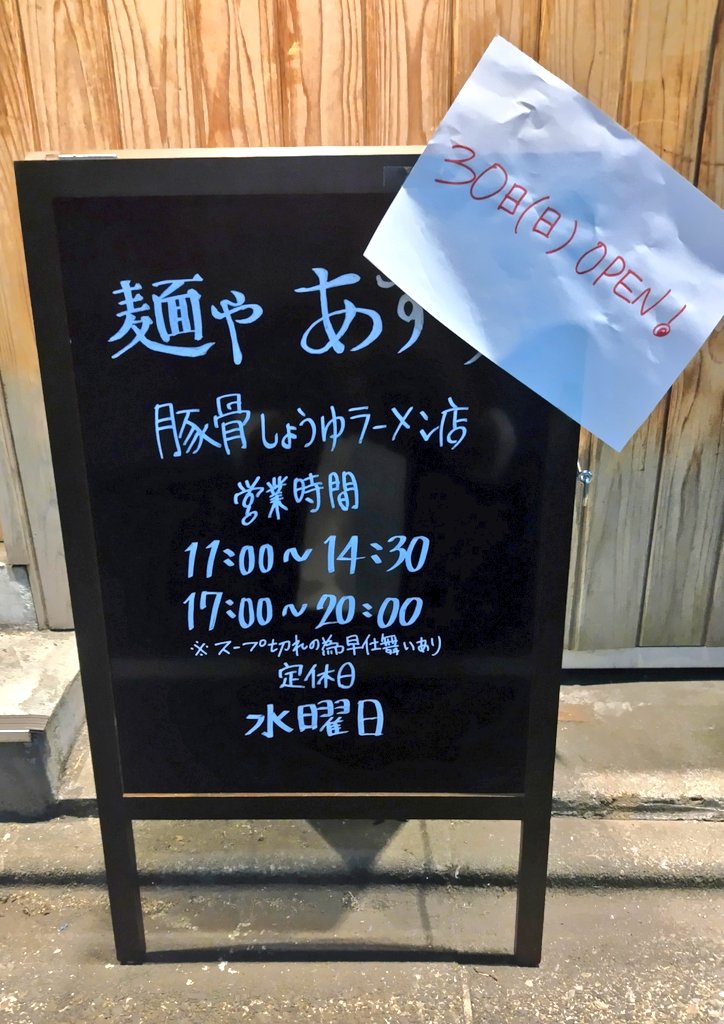 30日(日) OPEN!
麺や あす
豚骨しょうゆラーメン店
営業時間
11:00〜14:30
17:00〜20:00
※スープ切れの為早仕舞いあり
定休日
水曜日